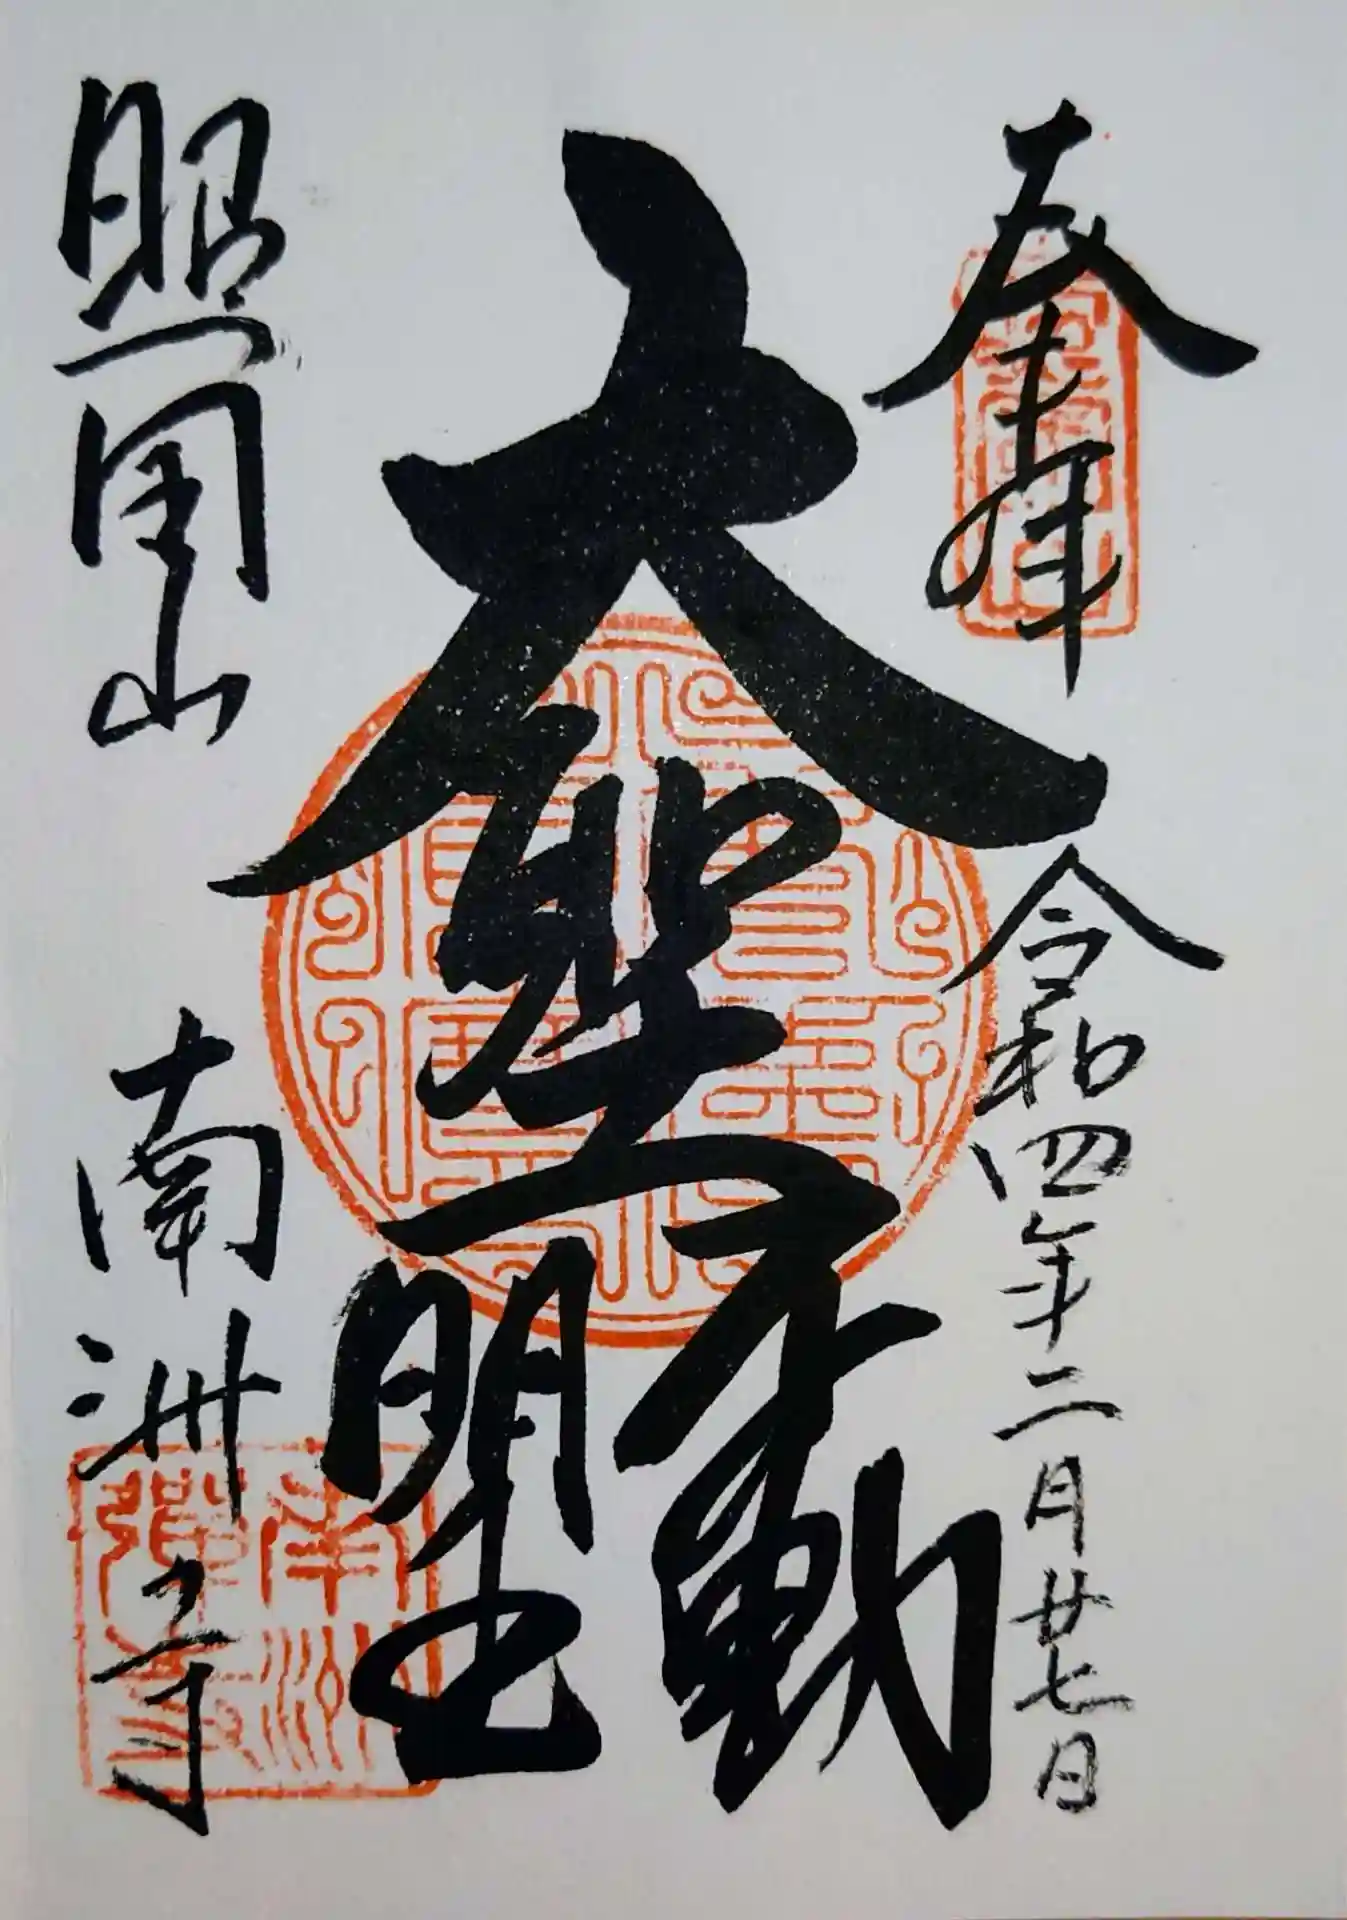 奉拝
令和四年二月廿七日
大聖不動
明王
照園山
南洲寺
南洲禅寺